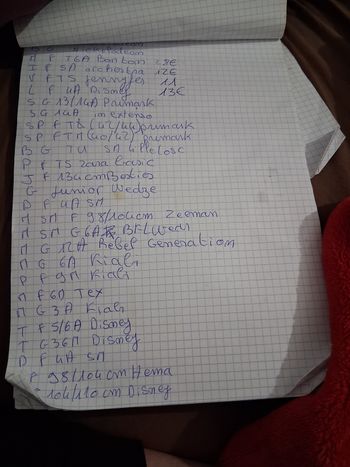 M F T6A Bonbon 28€
I F SM orchestra 12€
V F TS Jennyfer 11
L F 4A Disney 13€
S G 13/14A Primark
S G 14A in extenso
SP F TS (42/44) primark
SP F TM (40/42) primark
B G TU SM
P F TS zara basic
J F 134cm
G Junior Wedze
D F 4A SM
M SM F 98/104cm Zeeman
M SM G6A
M G 12A Rebel Generation
M G 6A Kiabi
P F 9M Kiabi
M F 6A Tex
M G 3A Kiabi
T F 5/6A Disney
T G36M Disney
D F 4A SM
F 98/104cm Hema
104/110cm Disney